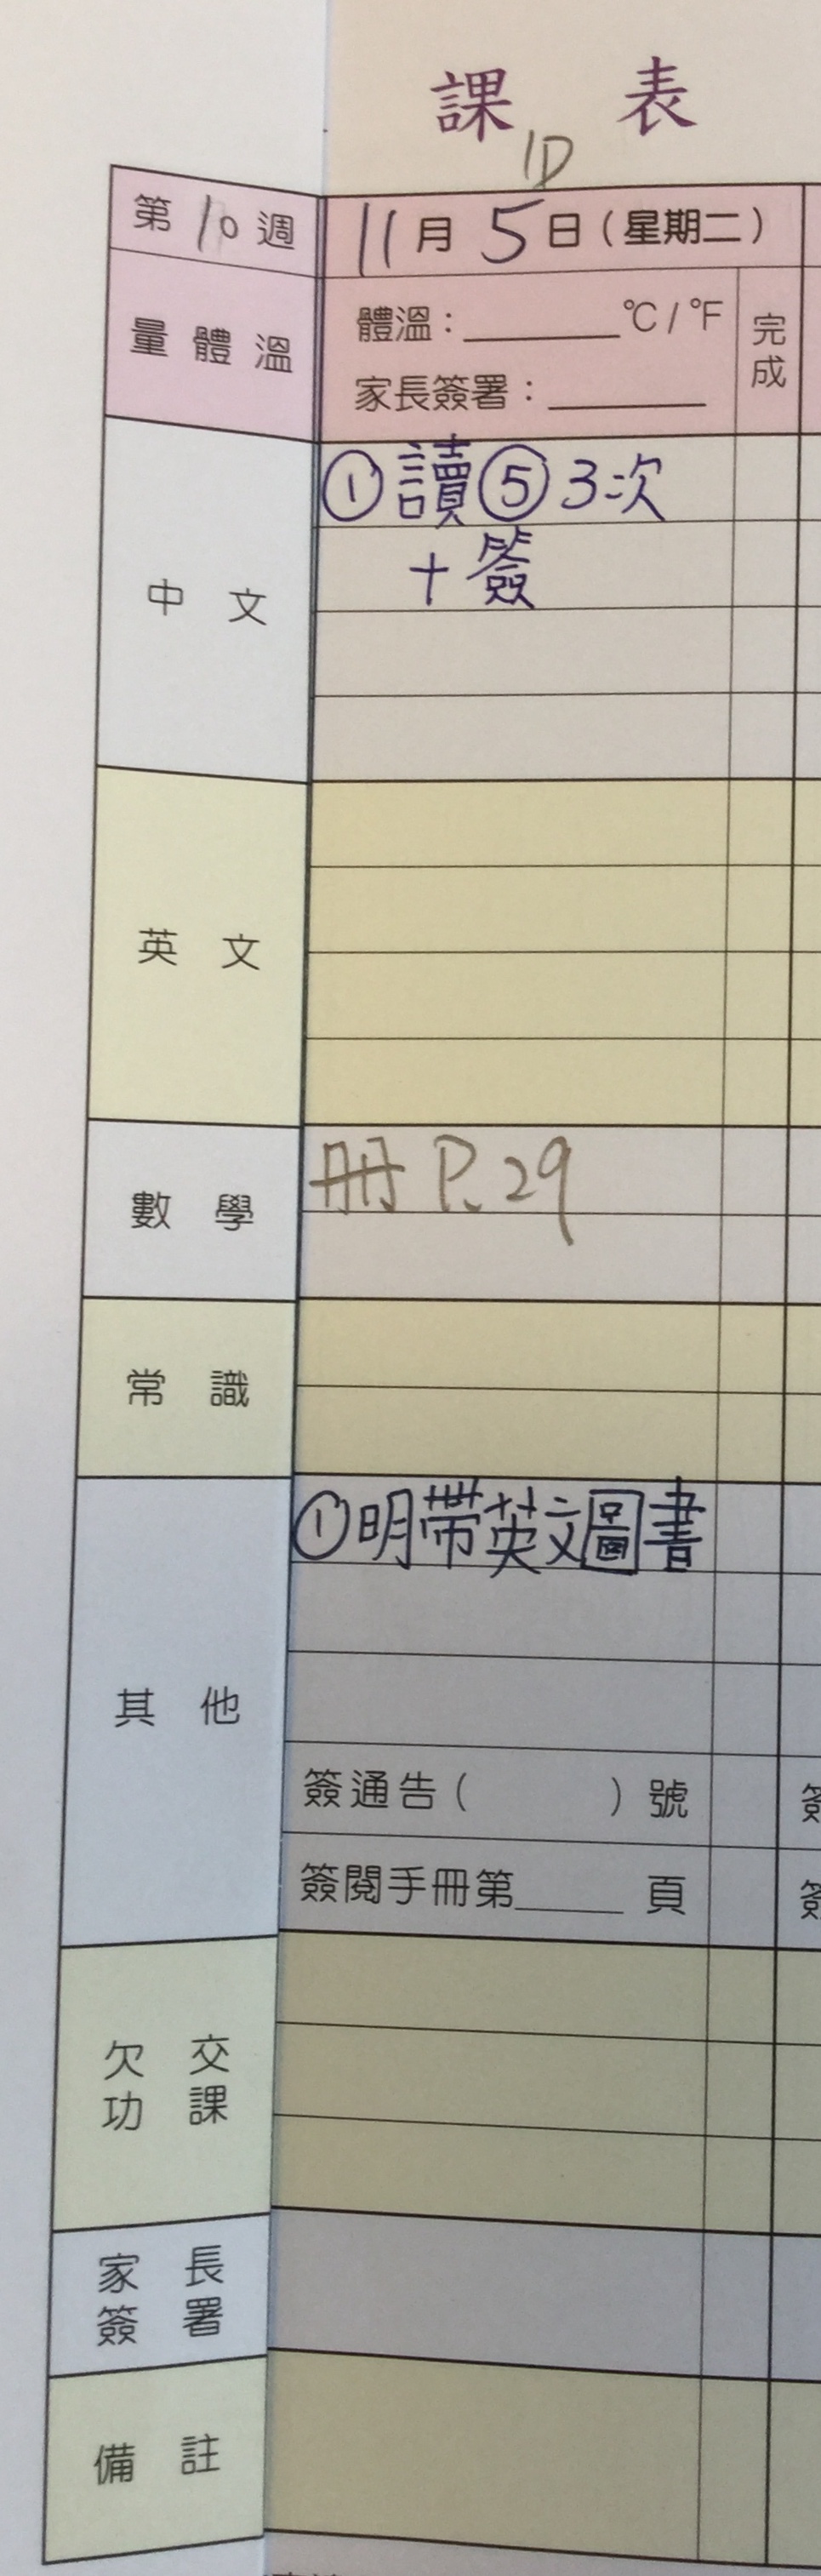 課 表
1D
第10週 11月5日（星期二）
量體溫 體溫：______°C/°F 完成
家長簽署：______
中文 ①讀⑤3次
+簽
英文
數學 冊 P.29
常識
其他 ①明帶英文圖書
簽通告（ ）號 簽
簽閱手冊第______頁 簽
欠交
功課
家長
簽署
備註